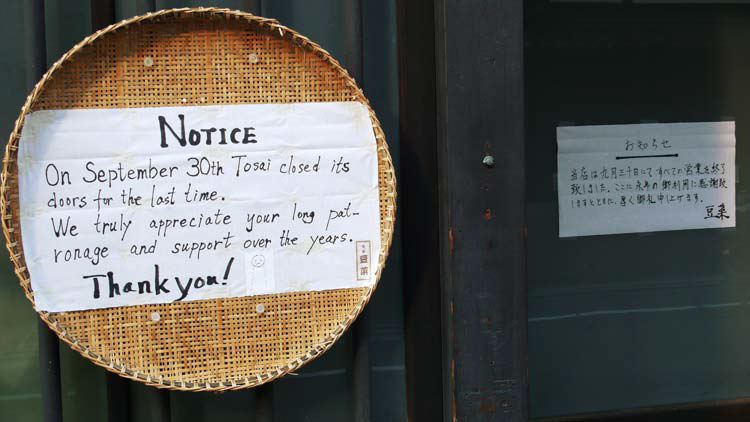 NOTICE
On September 30th Tosai closed its
doors for the last time.
We truly appreciate your long pat-
ronage and support over the years.
Thank you!
豆菜
お知らせ
当店は九月三十日にてすべての営業を終了
致しました。ここに永年の御利用に感謝致
しますとともに、厚く御礼申し上げます。
豆菜